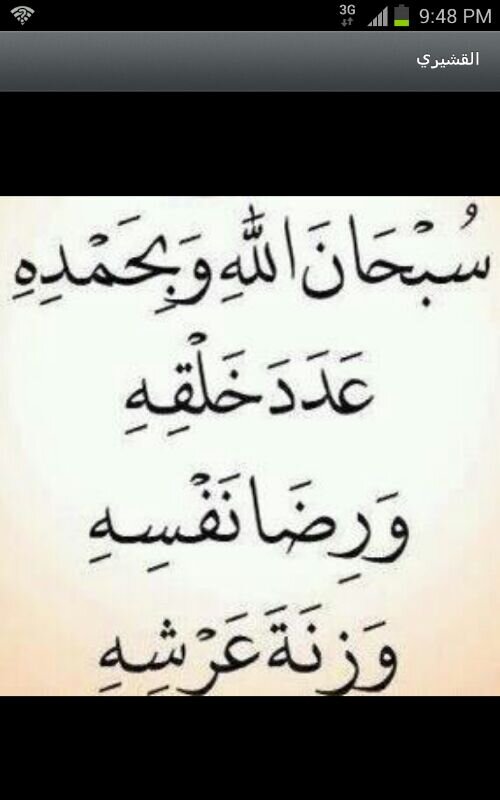 3G 9:48 PM
القشيري
سُبْحَانَ اللَّهِ وَبِحَمْدِهِ
عَدَدَ خَلْقِهِ
وَرِضَا نَفْسِهِ
وَزِنَةَ عَرْشِهِ